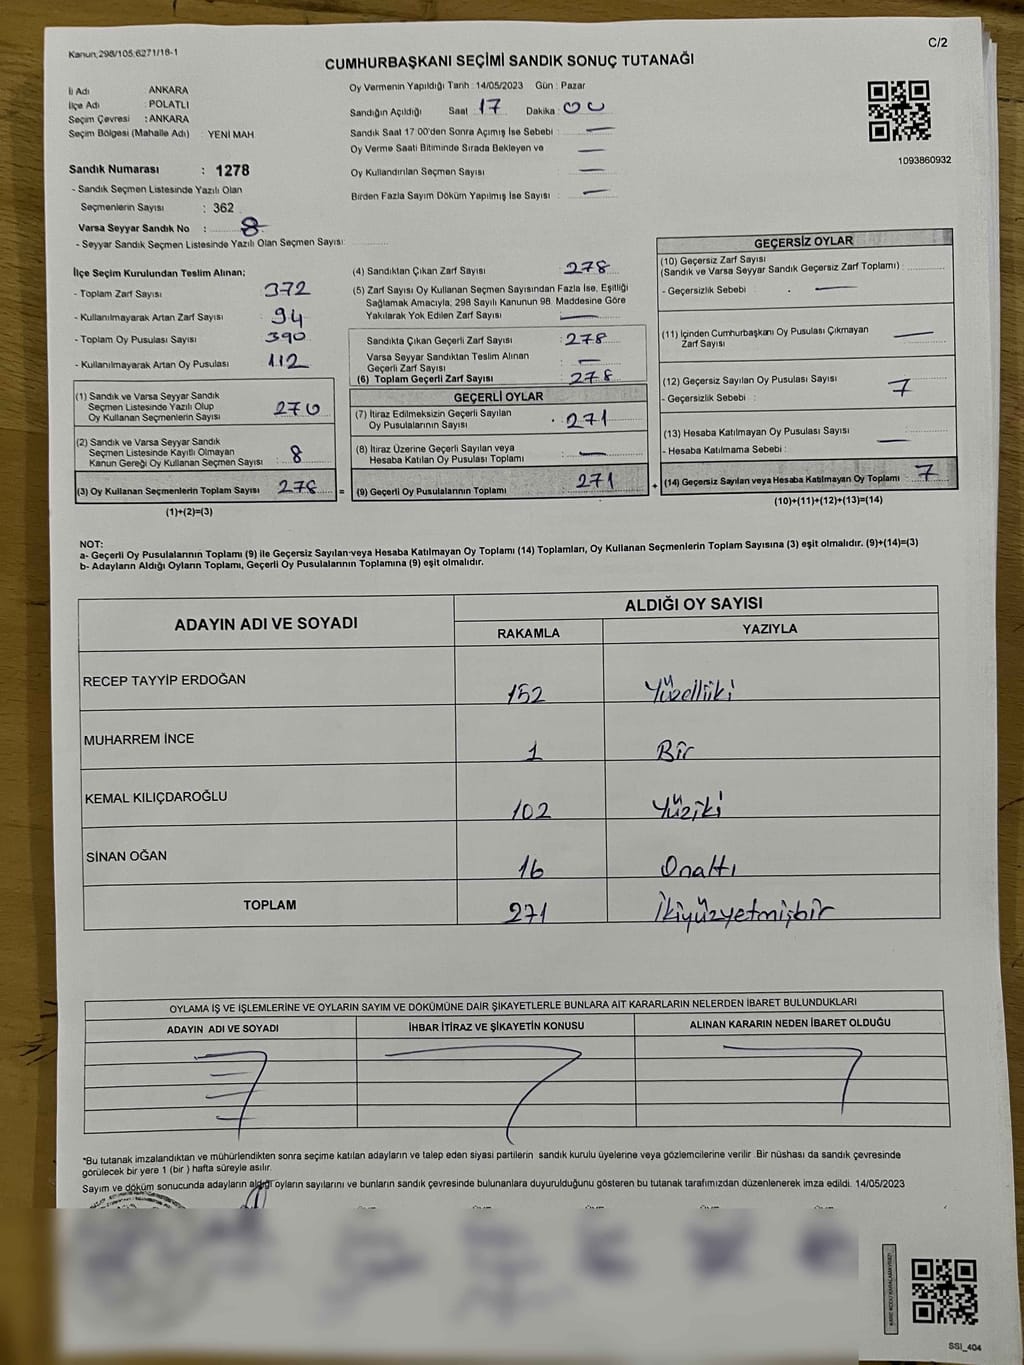 Kanun;298/105;6271/18-1
C/2
CUMHURBAŞKANI SEÇİMİ SANDIK SONUÇ TUTANAĞI
İl Adı ANKARA
İlçe Adı : POLATLI
Seçim Çevresi : ANKARA
Seçim Bölgesi (Mahalle Adı) : YENİ MAH
Oy Vermenin Yapıldığı Tarih : 14/05/2023 Gün : Pazar
Sandığın Açıldığı Saat 17 Dakika : 00
Sandık Saat 17:00'den Sonra Açımış İse Sebebi : —
Oy Verme Saati Bitiminde Sırada Bekleyen ve —
Oy Kullandırılan Seçmen Sayısı —
Birden Fazla Sayım Döküm Yapılmış İse Sayısı : —
1093860932
Sandık Numarası : 1278
- Sandık Seçmen Listesinde Yazılı Olan
Seçmenlerin Sayısı : 362
Varsa Seyyar Sandık No : 8
- Seyyar Sandık Seçmen Listesinde Yazılı Olan Seçmen Sayısı:
İlçe Seçim Kurulundan Teslim Alınan:
- Toplam Zarf Sayısı 372
- Kullanılmayarak Artan Zarf Sayısı : 94
- Toplam Oy Pusulası Sayısı : 390
- Kullanılmayarak Artan Oy Pusulası : 112
(1) Sandık ve Varsa Seyyar Sandık
Seçmen Listesinde Yazılı Olup
Oy Kullanan Seçmenlerin Sayısı : 270
(2) Sandık ve Varsa Seyyar Sandık
Seçmen Listesinde Kayıtlı Olmayan
Kanun Gereği Oy Kullanan Seçmen Sayısı : 8
(3) Oy Kullanan Seçmenlerin Toplam Sayısı : 278
(1)+(2)=(3)
=
(4) Sandıktan Çıkan Zarf Sayısı : 278
(5) Zarf Sayısı Oy Kullanan Seçmen Sayısından Fazla İse, Eşitliği
Sağlamak Amacıyla, 298 Sayılı Kanunun 98. Maddesine Göre
Yakılarak Yok Edilen Zarf Sayısı : —
Sandıkta Çıkan Geçerli Zarf Sayısı : 278
Varsa Seyyar Sandıktan Teslim Alınan
Geçerli Zarf Sayısı : —
(6) Toplam Geçerli Zarf Sayısı : 278
GEÇERLİ OYLAR
(7) İtiraz Edilmeksizin Geçerli Sayılan
Oy Pusulalarının Sayısı : 271
(8) İtiraz Üzerine Geçerli Sayılan veya
Hesaba Katılan Oy Pusulası Toplamı : —
(9) Geçerli Oy Pusulalarının Toplamı : 271
+
GEÇERSİZ OYLAR
(10) Geçersiz Zarf Sayısı
(Sandık ve Varsa Seyyar Sandık Geçersiz Zarf Toplamı) :
- Geçersizlik Sebebi : —
(11) İçinden Cumhurbaşkanı Oy Pusulası Çıkmayan
Zarf Sayısı —
(12) Geçersiz Sayılan Oy Pusulası Sayısı : 7
- Geçersizlik Sebebi :
(13) Hesaba Katılmayan Oy Pusulası Sayısı : —
- Hesaba Katılmama Sebebi :
(14) Geçersiz Sayılan veya Hesaba Katılmayan Oy Toplamı : 7
(10)+(11)+(12)+(13)=(14)
NOT:
a- Geçerli Oy Pusulalarının Toplamı (9) ile Geçersiz Sayılan veya Hesaba Katılmayan Oy Toplamı (14) Toplamları, Oy Kullanan Seçmenlerin Toplam Sayısına (3) eşit olmalıdır. (9)+(14)=(3)
b- Adayların Aldığı Oyların Toplamı, Geçerli Oy Pusulalarının Toplamına (9) eşit olmalıdır.
ADAYIN ADI VE SOYADI ALDIĞI OY SAYISI
RAKAMLA YAZIYLA
RECEP TAYYİP ERDOĞAN 152 Yüzelliiki
MUHARREM İNCE 1 Bir
KEMAL KILIÇDAROĞLU 102 Yüziki
SİNAN OĞAN 16 Onaltı
TOPLAM 271 İkiyüzyetmişbir
OYLAMA İŞ VE İŞLEMLERİNE VE OYLARIN SAYIM VE DÖKÜMÜNE DAİR ŞİKAYETLERLE BUNLARA AİT KARARLARIN NELERDEN İBARET BULUNDUKLARI
ADAYIN ADI VE SOYADI İHBAR İTİRAZ VE ŞİKAYETİN KONUSU ALINAN KARARIN NEDEN İBARET OLDUĞU
*Bu tutanak imzalandıktan ve mühürlendikten sonra seçime katılan adayların ve talep eden siyasi partilerin sandık kurulu üyelerine veya gözlemcilerine verilir .Bir nüshası da sandık çevresinde
görülecek bir yere 1 (bir ) hafta süreyle asılır.
Sayım ve döküm sonucunda adayların aldığı oyların sayılarını ve bunların sandık çevresinde bulunanlara duyurulduğunu gösteren bu tutanak tarafımızdan düzenlenerek imza edildi. 14/05/2023
SSI_404